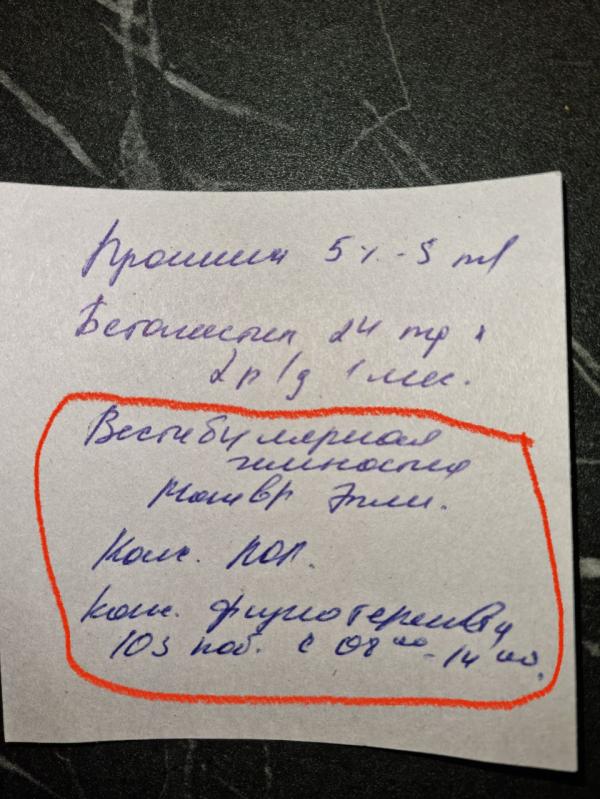 5% - 5 ml
Бетагистин 24 mg x
2р/д 1 мес.
Вестибулярная
гимнастика
Маневр Эпли.
Конс. ЛОР.
Конс. физиотерапевта
103 каб. с 08 00 - 14 00.